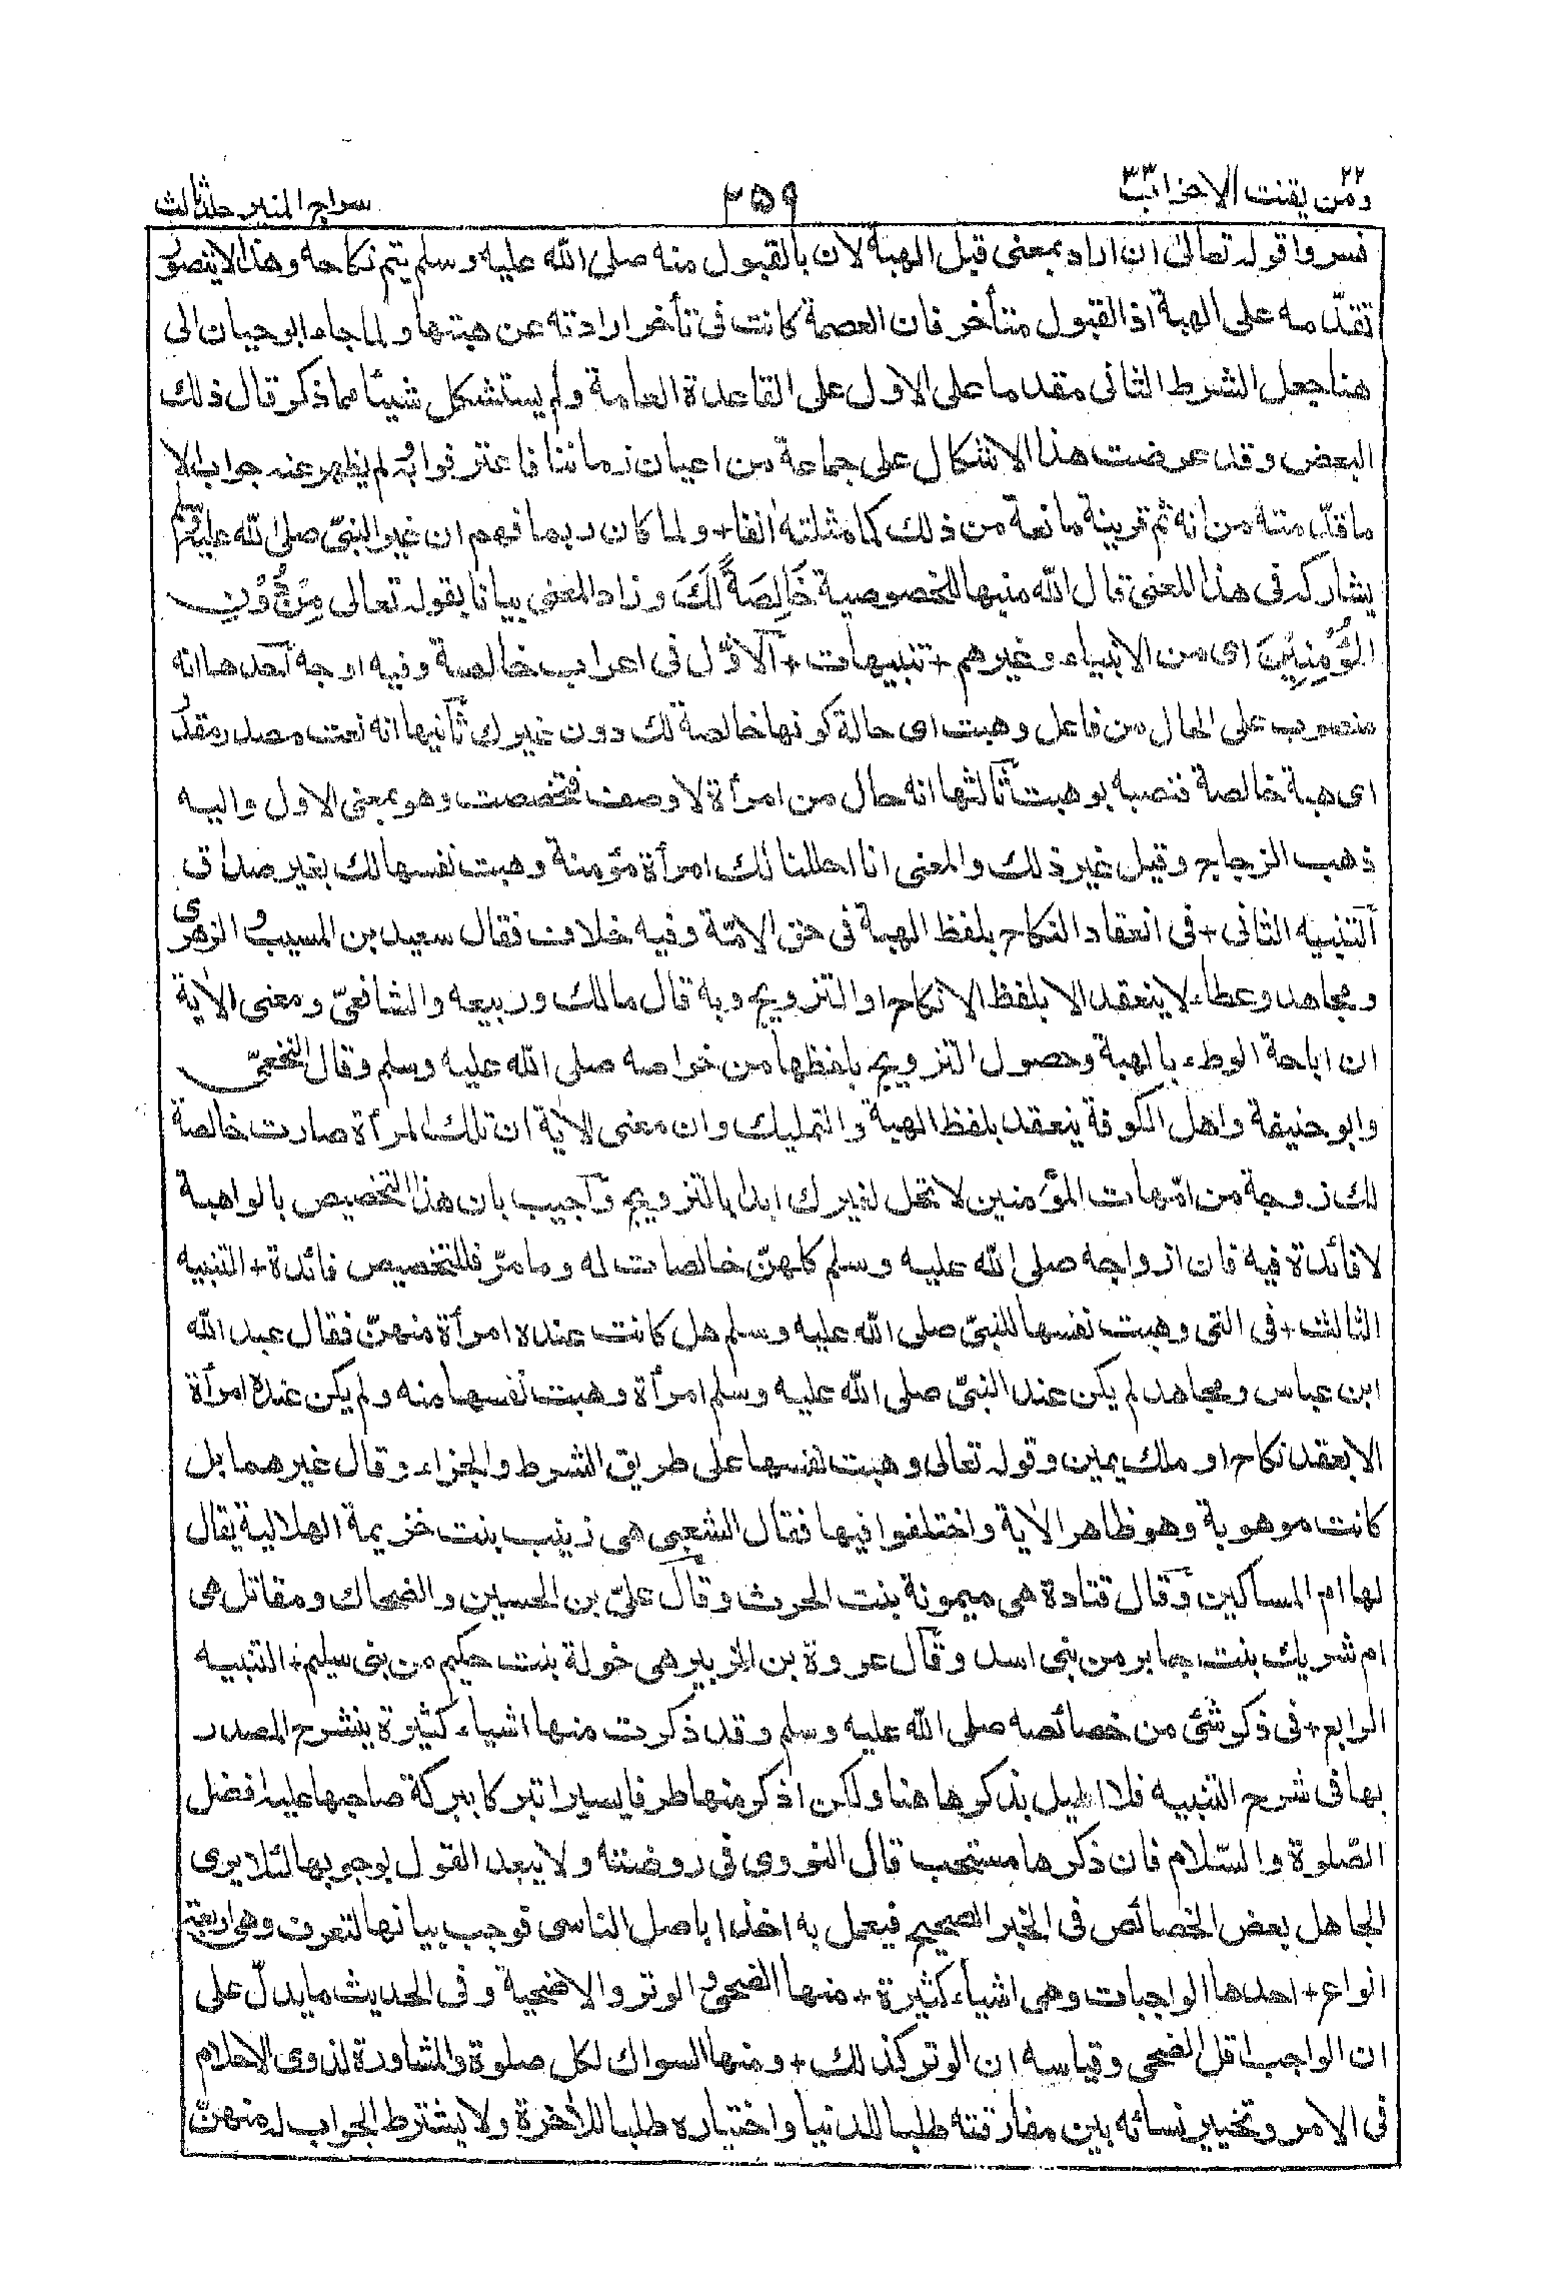 ومن يقنت ٢٢ الاحزاب ٣٣
٢٥٩
سراج المنير جلد ثالث
فسروا قوله تعالى ان اراد بمعنى قبل الهبة لان بالقبول منه صلى الله عليه وسلم يتم نكاحه وهذا لا يتصور
تقدّمه على الهبة اذ القبول متأخر فان العصمة كانت فى تأخر ارادته عن هبتها ولما جاء ابو حيان الى
هنا جعل الشرط الثانى مقدما على الاول على القاعدة العامة ولم يستشكل شيئا مما ذكر قال ذلك
البعض وقد عرضت هذا الاشكال على جماعة من اعيان زماننا فاعترفوا به ولم يظهر عنه جواب الا
ما قدّمته من انه ثم قرينة مانعة من ذلك كما مثلته انفا + ولما كان ربما فهم ان غير النبىّ صلى الله عليه وسلم
يشاركه فى هذا المعنى قال الله منبها للخصوصية خَالِصَةً لَكَ وزاد المعنى بيانا بقوله تعالى مِنْ دُوْنِ
الْمُؤْمِنِيْنَ اى من الانبياء وغيرهم + تنبيهات + الاوّل فى اعراب خالصة وفيه اوجه احدها انه
منصوب على الحال من فاعل وهبت اى حالة كونها خالصة لك دون غيرك ثانيها انه نعت مصدر مقدر
اى هبة خالصة فنصبه بوهبت ثالثها انه حال من امرأة لا وصف فتخصصت وهو بمعنى الاول واليه
ذهب الزجاج وقيل غير ذلك والمعنى انا احللنا لك امرأة مؤمنة وهبت نفسها لك بغير صداق
التنبيه الثانى + فى انعقاد النكاح بلفظ الهبة فى حق الامّة وفيه خلاف فقال سعيد بن المسيب والزهرى
ومجاهد وعطاء لا ينعقد الا بلفظ الانكاح او التزويج وبه قال مالك وربيعه والشافعىّ ومعنى الاٰية
ان اباحة الوطء بالهبة وحصول التزويج بلفظها من خواصه صلى الله عليه وسلم وقال النخعىّ
وابو حنيفة واهل الكوفة ينعقد بلفظ الهبة والتمليك وان معنى الاٰية ان تلك المرأة صارت خالصة
لك زوجة من امّهات المؤمنين لا تحل لغيرك ابدا بالتزويج واجيب بان هذا التخصيص بالواهبة
لا فائدة فيه فان ازواجه صلى الله عليه وسلم كلهنّ خالصات له وما مرّ فللتخصيص فائدة + التنبيه
الثالث + فى التى وهبت نفسها للنبىّ صلى الله عليه وسلم هل كانت عنده امرأة منهنّ فقال عبد الله
ابن عباس ومجاهد لم يكن عند النبىّ صلى الله عليه وسلم امرأة وهبت نفسها منه ولم يكن عنده امرأة
الا بعقد نكاح او ملك يمين وقوله تعالى وهبت نفسها على طريق الشرط والجزاء وقال غيرهما بل
كانت موهوبة وهو ظاهر الاٰية واختلفوا فيها فقال الشعبى هى زينب بنت خزيمة الهلالية يقال
لها ام المساكين وقال قتادة هى ميمونة بنت الحرث وقال علىّ بن الحسين والضحاك ومقاتل هى
ام شريك بنت جابر من بنى اسد وقال عروة بن الزبير هى خولة بنت حكيم من بنى سليم + التنبيه
الرابع + فى ذكر شئ من خصائصه صلى الله عليه وسلم وقد ذكرت منها اشياء كثيرة ينشرح الصدر
بها فى شرح التنبيه فلا اطيل بذكرها هنا ولكن اذكر منها طرفا يسيرا تبركا ببركة صاحبها عليه افضل
الصّلوة والسّلام فان ذكرها مستحب قال النووى فى روضته ولا يبعد القول بوجوبها لئلا يرى
الجاهل بعض الخصائص فى الخبر الصحيح فيعمل به اخذا باصل التاسى فوجب بيانها لتعرف وهى اربعة
انواع + احدها الواجبات وهى اشياء كثيرة + منها الضحى والوتر والاضحية وفى الحديث ما يدلّ على
ان الواجب اقل الضحى وقياسه ان الوتر كذلك + ومنها السواك لكل صلوة والمشاورة لذوى الاحلام
فى الامر وتخيير نسائه بين مفارقته طلبا للدنيا واختياره طلبا للاٰخرة ولا يشترط الجواب له منهنّ